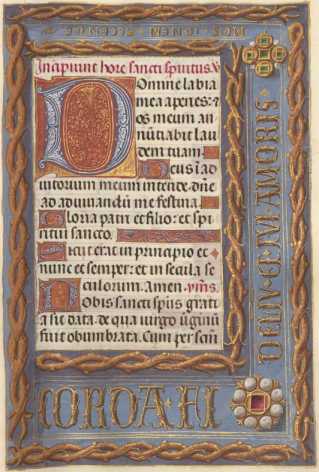 Incipiunt hore sancti spiritus. v
Domine labia
mea aperies: et
os meum an
nūtiabit lau
dem tuam.
Deus ī ad
iutorium meum intende. dn̄e
ad adiuuandū me festina.
Gloria patri et filio: et spi
ritui sancto.
Sicut erat in principio et
nunc et semper: et in secula se
culorum. amen. ymn̄s.
Nobis sancti spūs grati
a sit data. de qua uirgo uginū
fuit obumbrata. Cum per scūm
DELIV. ET TVI AMORIS
CORDA. FI